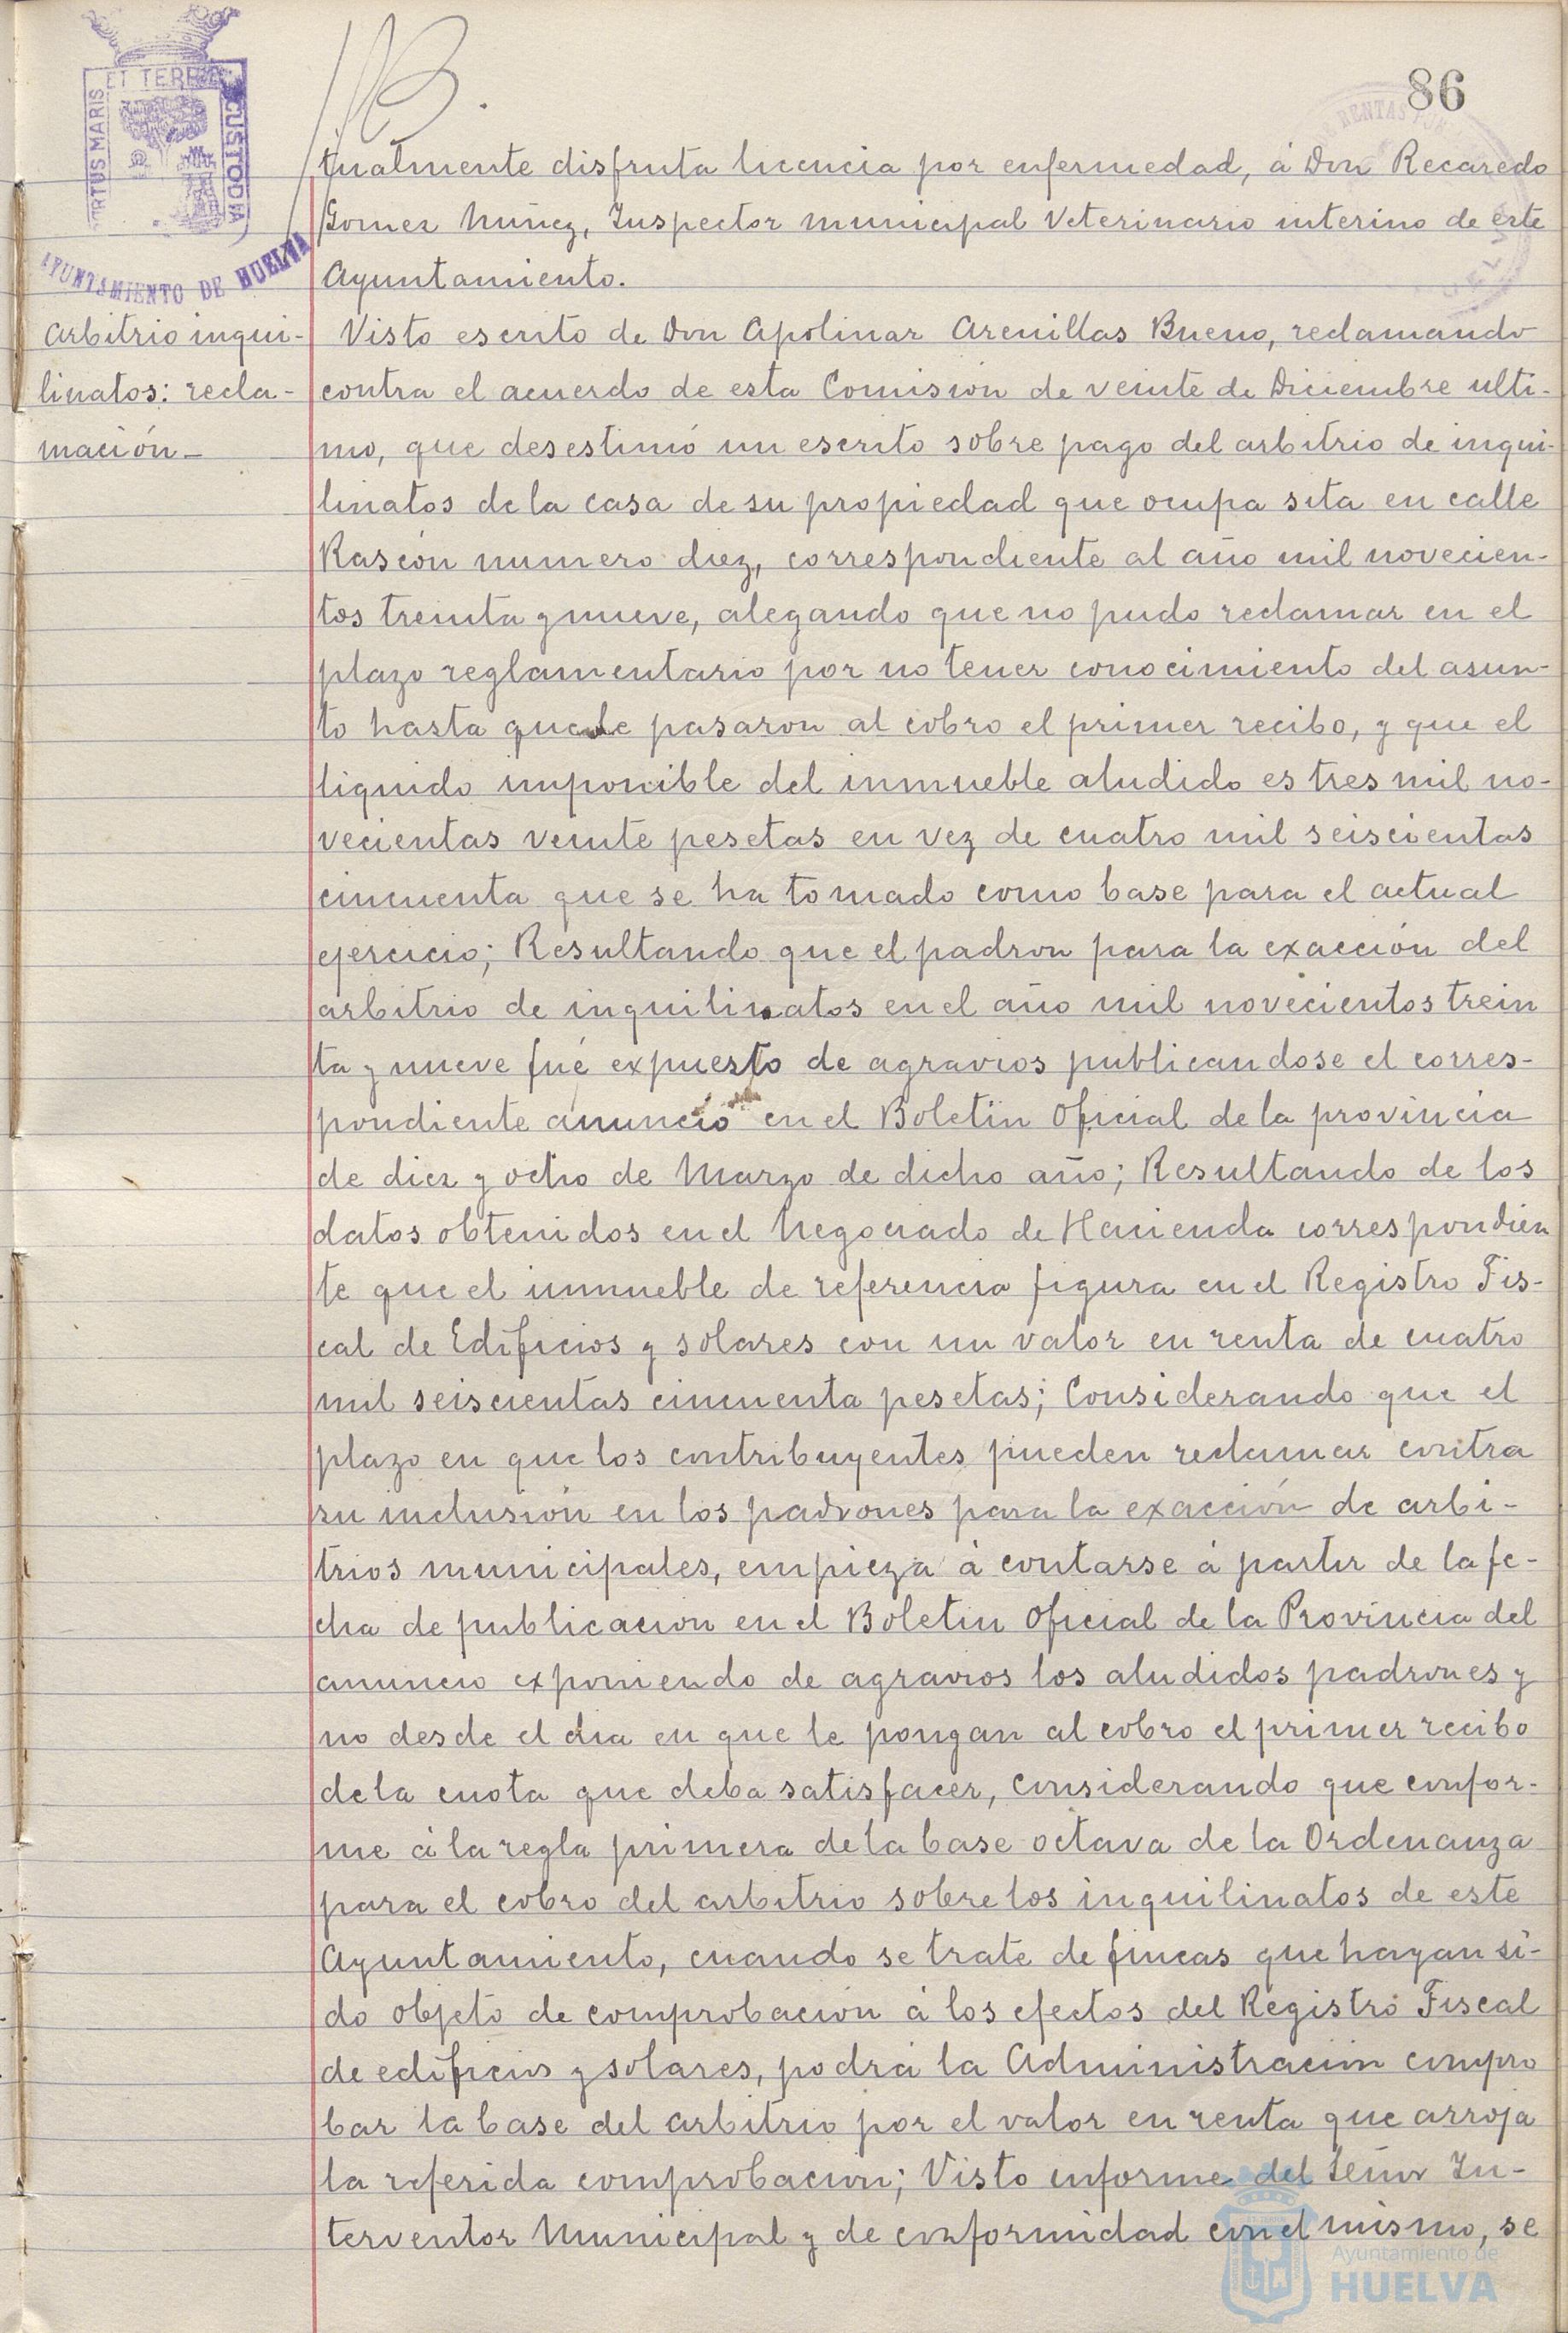 86
ET TERRE
CUSTODIA
AYUNTAMIENTO DE HUELVA
tualmente disfruta licencia por enfermedad, á Don Recaredo
Gomez Nuñez, Inspector municipal Veterinario interino de este
Ayuntamiento.
Arbitrio inqui-
linatos: recla-
mación-
Visto escrito de Don Apolinar Arenillas Bueno, reclamando
contra el acuerdo de esta Comisión de veinte de Diciembre ulti-
mo, que desestimó un escrito sobre pago del arbitrio de inqui-
linatos de la casa de su propiedad que ocupa sita en calle
Rascón numero diez, correspondiente al año mil novecien-
tos treinta y nueve, alegando que no pudo reclamar en el
plazo reglamentario por no tener conocimiento del asun-
to hasta que le pasaron al cobro el primer recibo, y que el
liquido imponible del inmueble aludido es tres mil no-
vecientas veinte pesetas en vez de cuatro mil seiscientas
cincuenta que se ha tomado como base para el actual
ejercicio; Resultando que el padron para la exacción del
arbitrio de inquilinatos en el año mil novecientos trein
ta y nueve fué expuesto de agravios publicandose el corres-
pondiente anuncio en el Boletin Oficial de la provincia
de diez y ocho de Marzo de dicho año; Resultando de los
datos obtenidos en el Negociado de Hacienda correspondien
te que el inmueble de referencia figura en el Registro Fis-
cal de Edificios y solares con un valor en renta de cuatro
mil seiscientas cincuenta pesetas; Considerando que el
plazo en que los contribuyentes pueden reclamar contra
su inclusión en los padrones para la exacción de arbi-
trios municipales, empieza á contarse á partir de la fe-
cha de publicacion en el Boletin Oficial de la Provincia del
anuncio exponiendo de agravios los aludidos padrones y
no desde el dia en que le pongan al cobro el primer recibo
de la cuota que deba satisfacer, considerando que confor-
me á la regla primera de la base octava de la Ordenanza
para el cobro del arbitrio sobre los inquilinatos de este
Ayuntamiento, cuando se trate de fincas que hayan si-
do objeto de comprobación á los efectos del Registro Fiscal
de edificios y solares, podrá la Administración compro
bar la base del arbitrio por el valor en renta que arroja
la referida comprobacion; Visto informe del Señor In-
terventor Municipal y de conformidad con el mismo, se
Ayuntamiento de
HUELVA